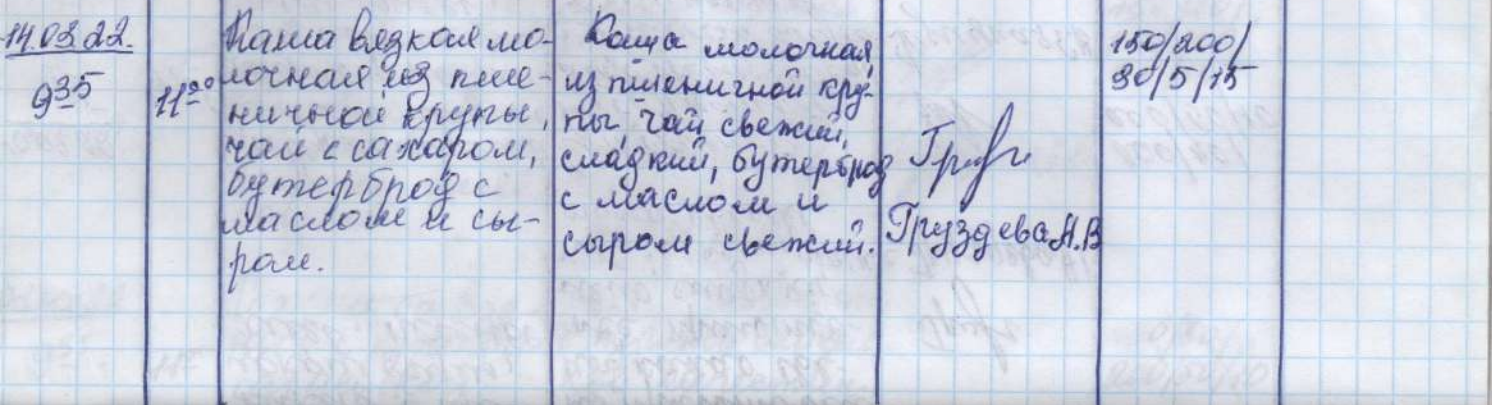 14.03.22.
9 35
11 20
Каша вязкая мо-
лочная из пше-
ничной крупы,
чай с сахаром,
бутерброд с
маслом и сы-
ром.
Каша молочная,
из пшеничной кру-
пы, чай свежий,
сладкий, бутерброд
с маслом и
сыром свежий.
Груздева А.В
150/200/
30/5/15